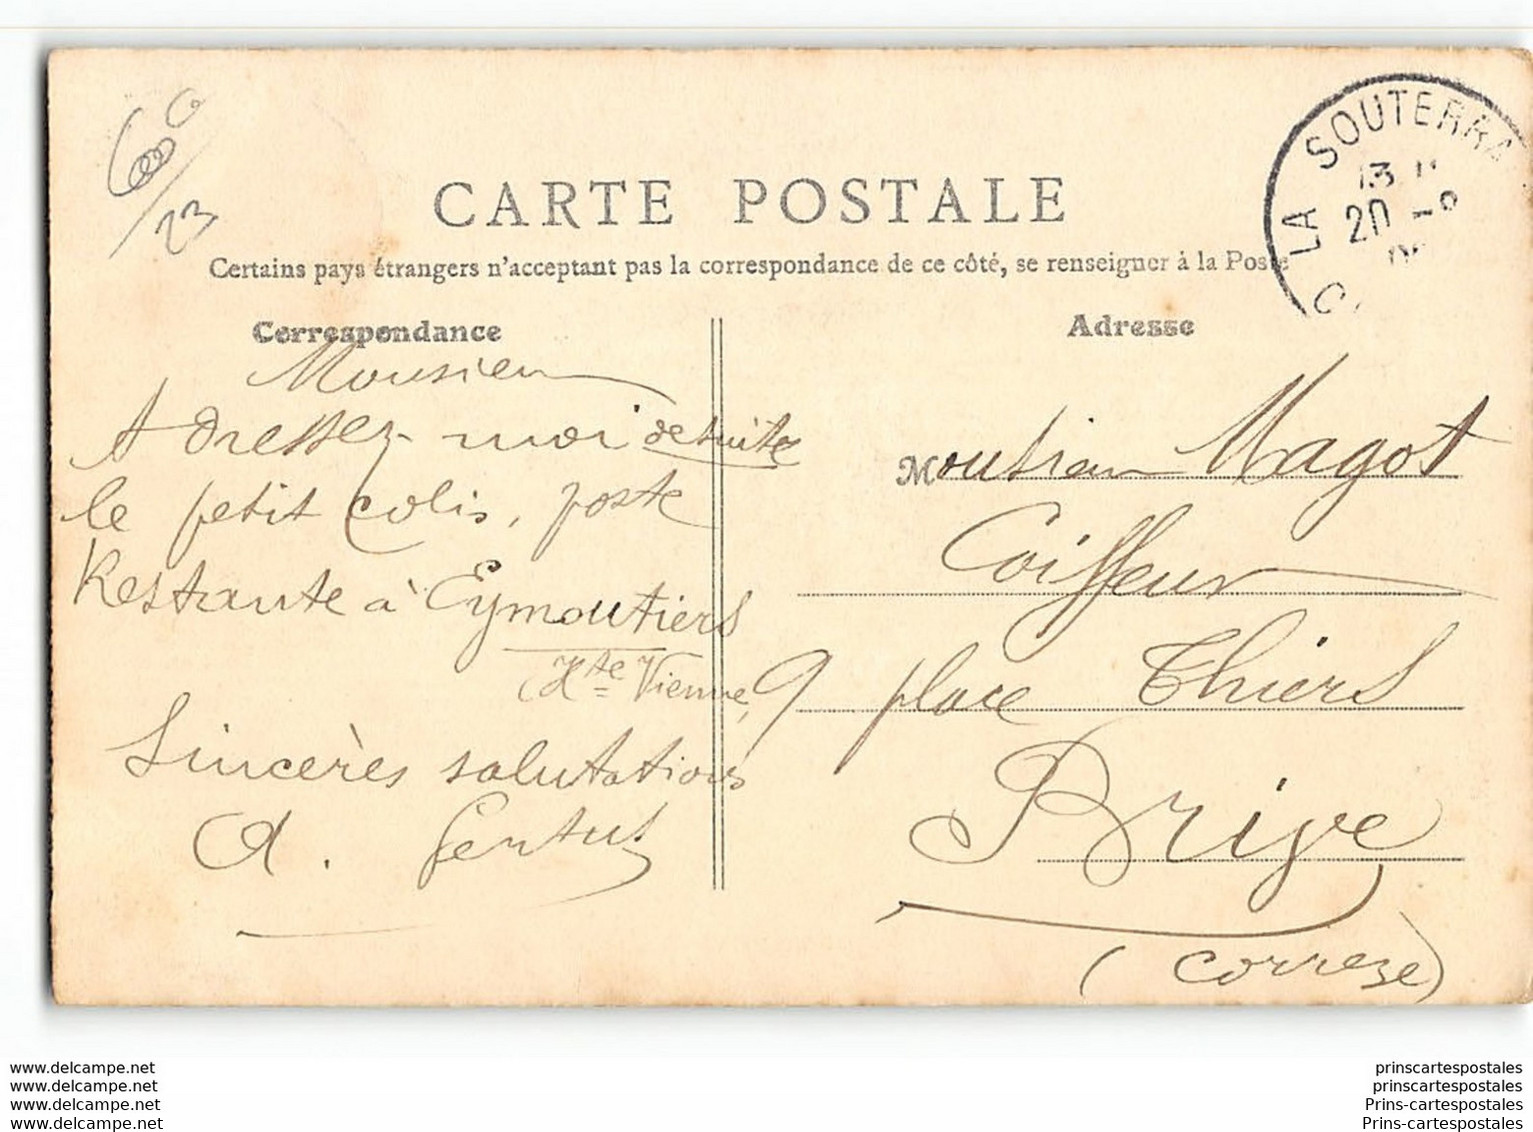 23
LA SOUTERRA
13
20 -8
CARTE POSTALE
Certains pays étrangers n'acceptant pas la correspondance de ce côté, se renseigner à la Poste
Correspondance
Monsieur
Adressez-moi de suite
le petit colis, poste
Restante à Eymoutiers
(Hte Vienne,
Sincères salutations
A.
Adresse
Monsieur Magot
Coiffeur
9 place Thiers
Brive
(Correze)
www.delcampe.net
www.delcampe.net
www.delcampe.net
www.delcampe.net
prinscartespostales
prinscartespostales
Prins-cartespostales
Prins-cartespostales